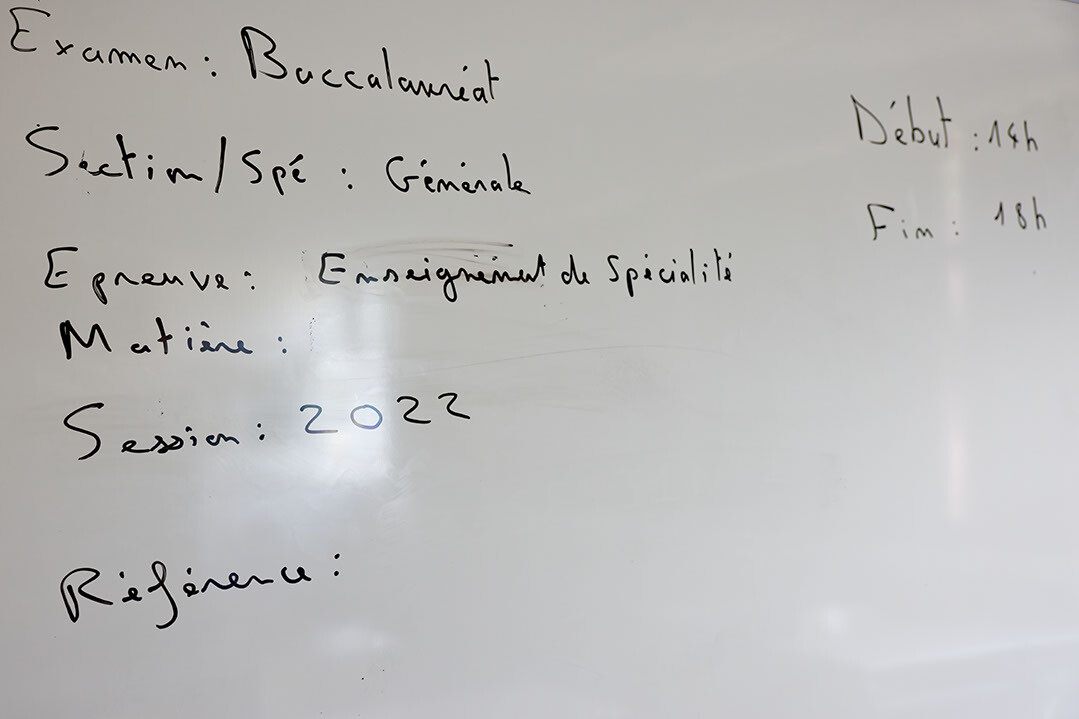 Examen : Baccalauréat
Section/Spé : Générale
Epreuve : Enseignement de Spécialité
Matière :
Session : 2022
Référence :
Début : 14h
Fin : 18h